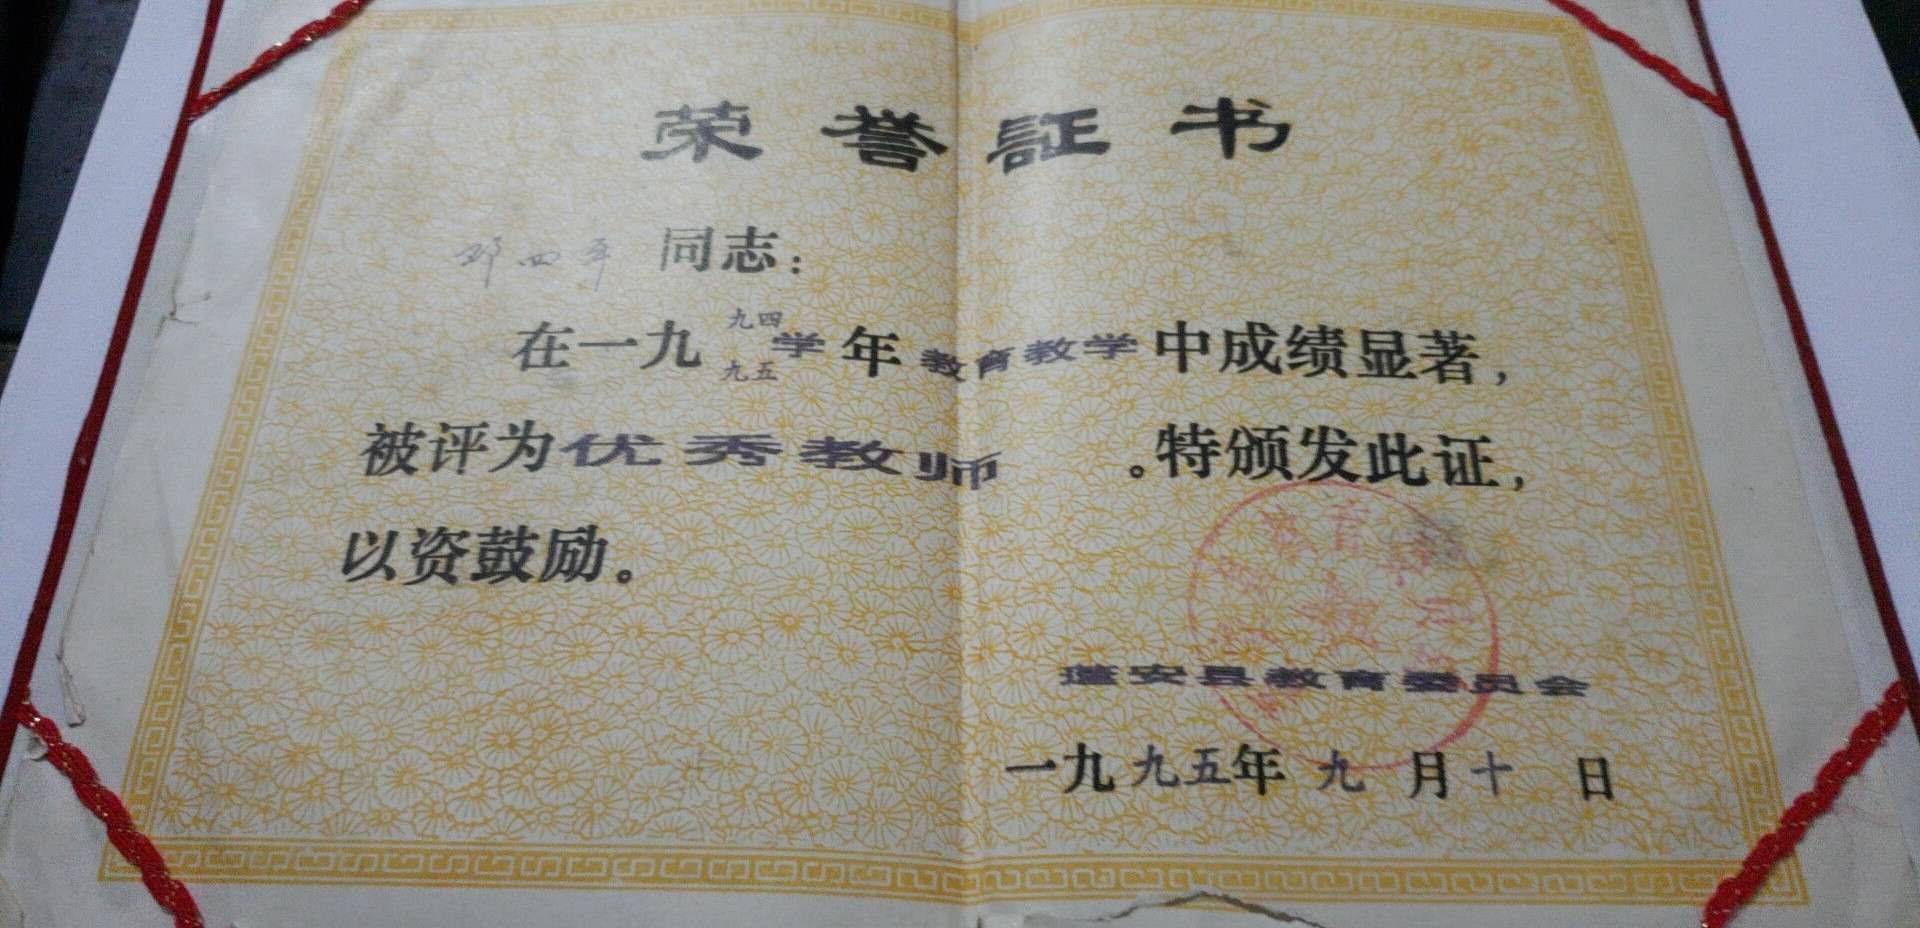 荣誉証书
邓四年 同志：
在一九九四九五学年教育教学中成绩显著，
被评为优秀教师。特颁发此证，
以资鼓励。
教育委员
蓬安县教育委员会
一九九五年九月十日